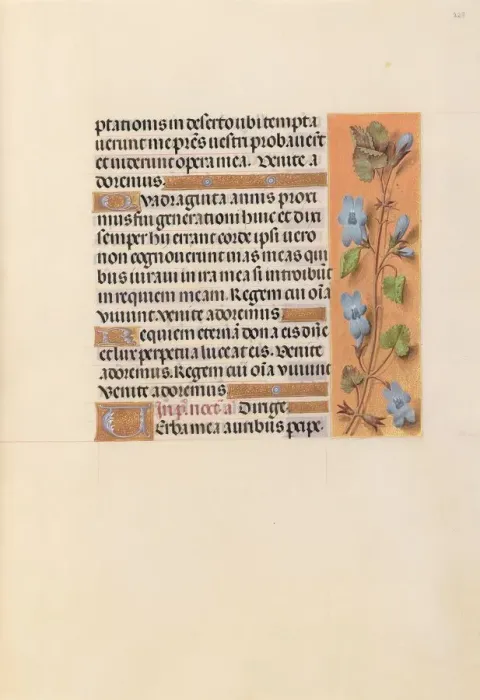 ptationis in deserto ubi tempta
uerunt me pr̃es uestri probauer̃t
et uiderunt opera mea. Venite a
doremus.
Quadraginta annis proxi
mus fui generationi huic et dixi
semper hij errant corde ipsi uero
non cognouerunt uias meas qui
bus iuraui in ira mea si introibũt
in requiem meam. Regem cui oĩa
viuunt venite adoremus
Requiem eternã dona eis dñe
et lux perpetua luceat eis. Venite
adoremus. Regem cui oĩa viuunt
Venite adoremus
Dirige.
Verba mea auribus percipe.